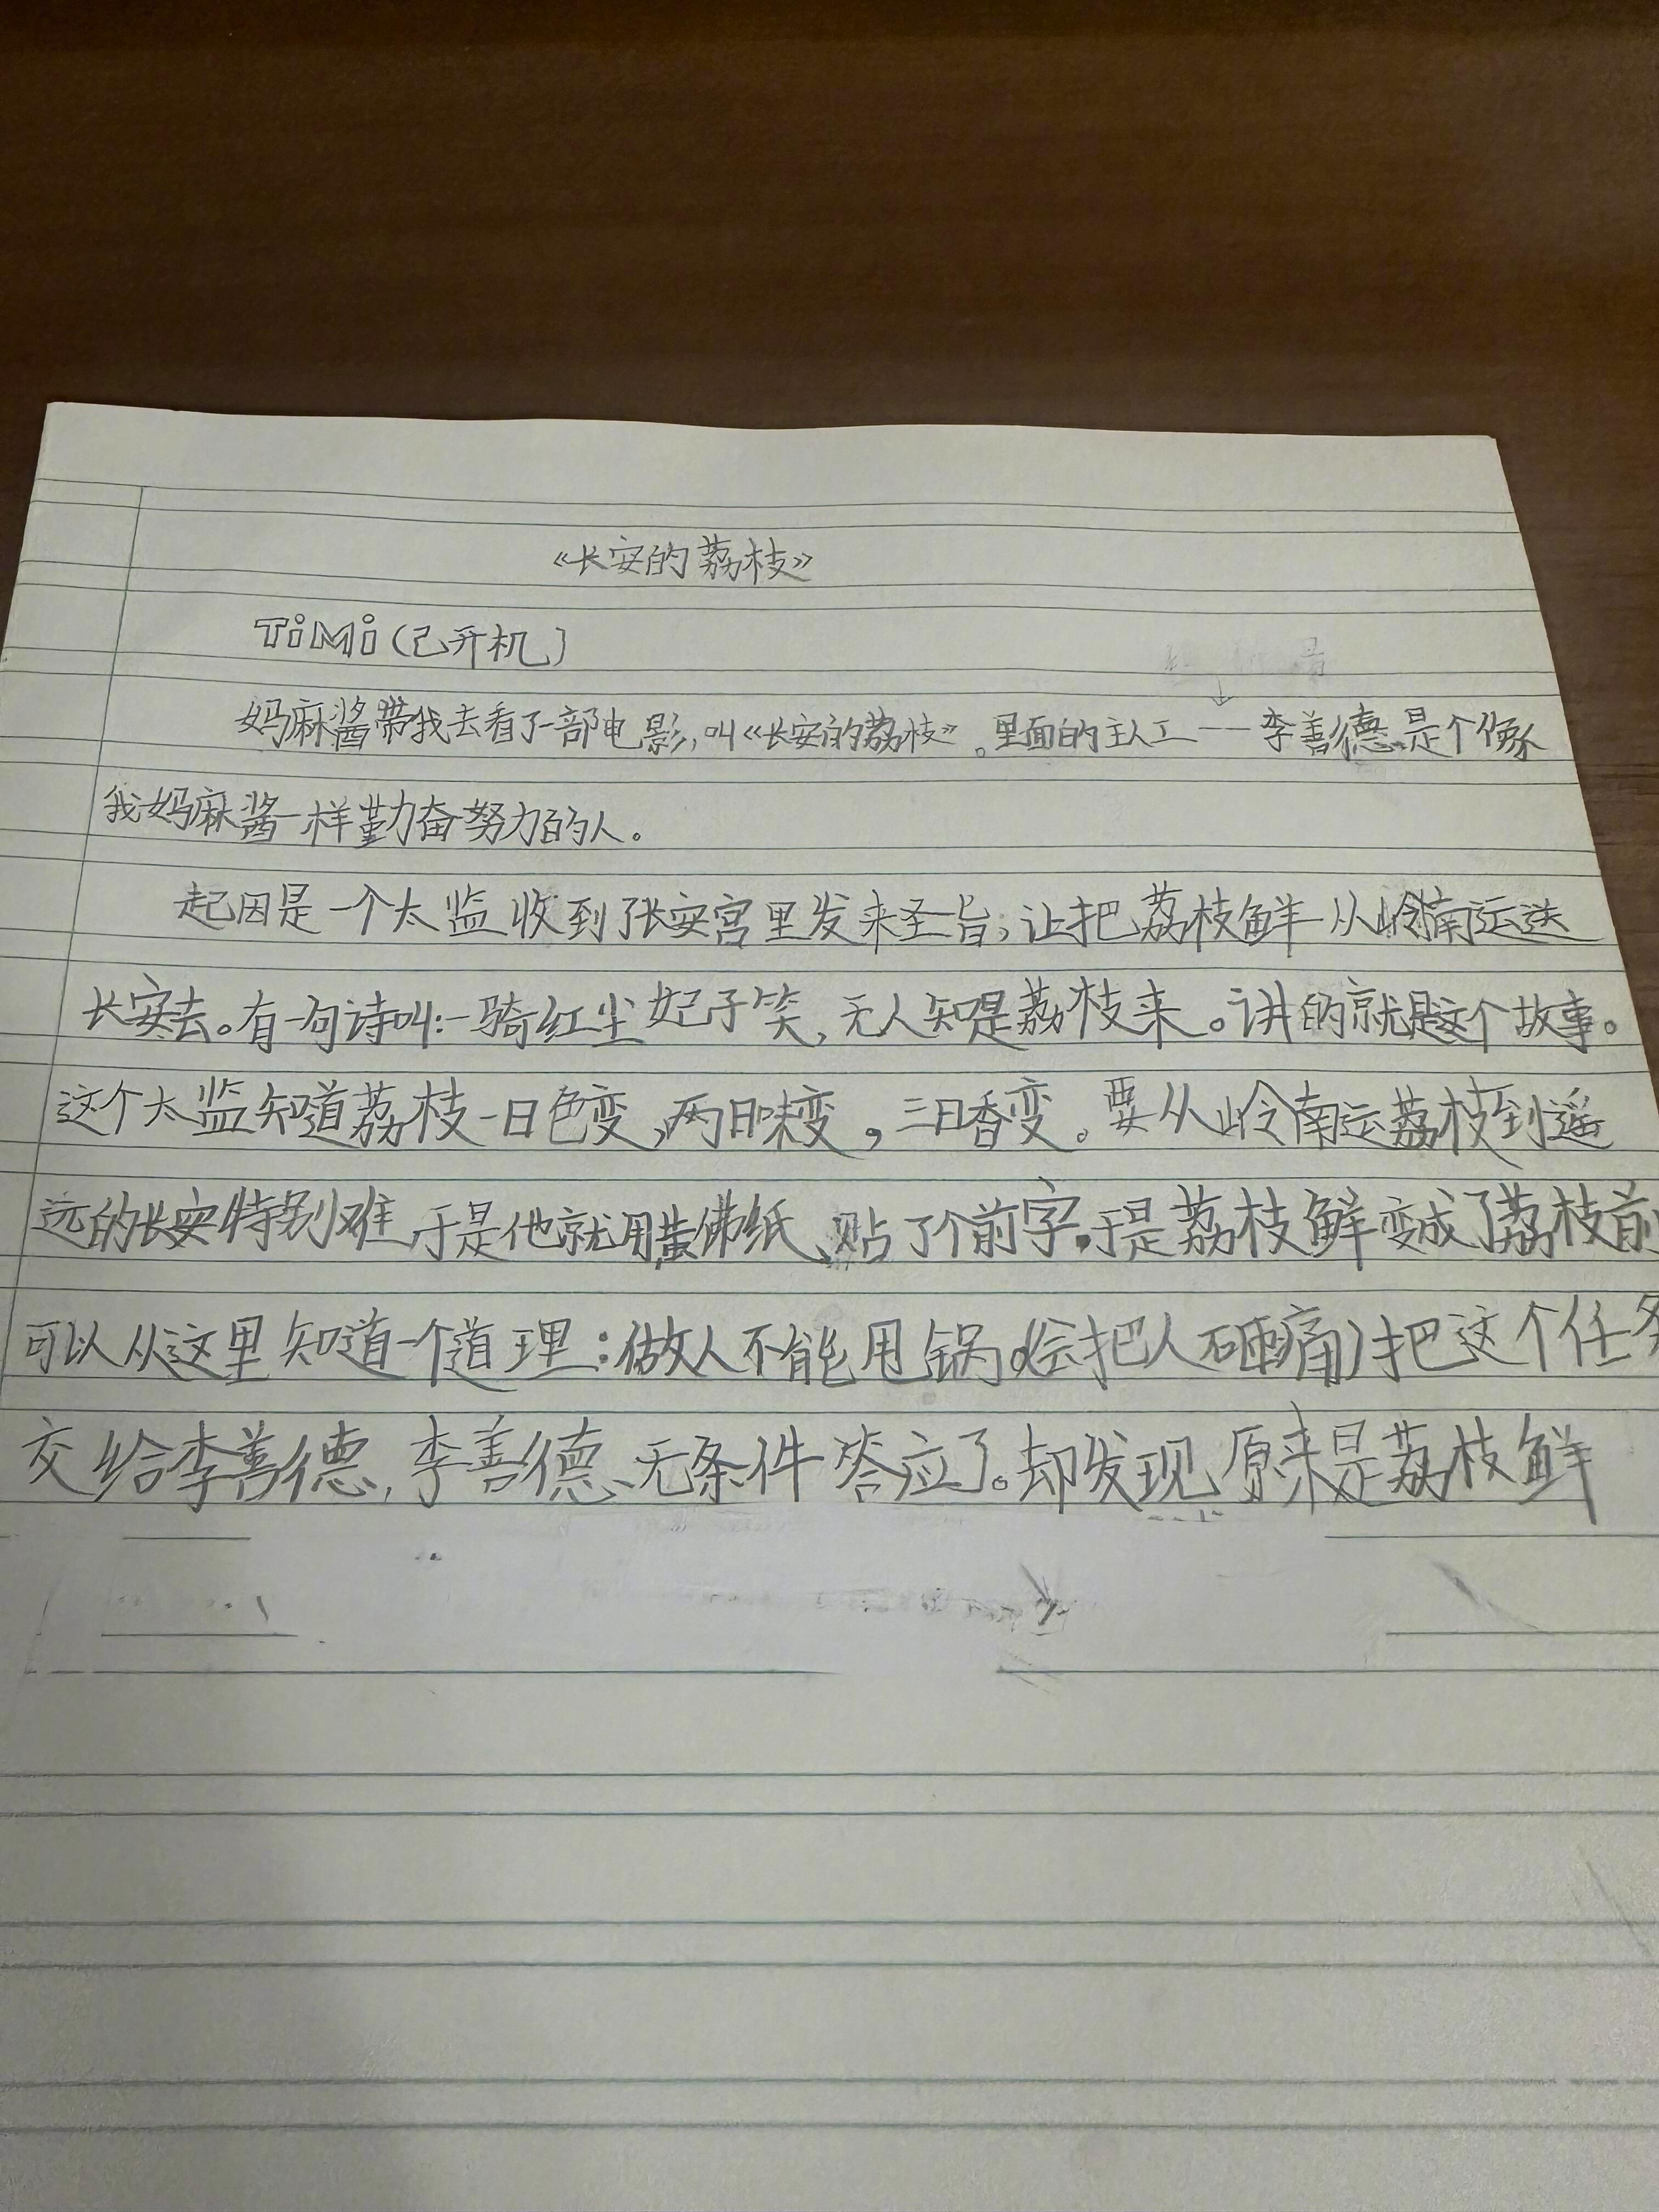 《长安的荔枝》
TiMi(已开机)
妈麻酱带我去看了一部电影,叫《长安的荔枝》。里面的主人工——李善德是个像
我妈麻酱一样勤奋努力的人。
起因是一个太监收到了长安宫里发来圣旨,让把荔枝鲜从岭南运送
长安去。有一句诗叫:一骑红尘妃子笑,无人知是荔枝来。讲的就是这个故事。
这个太监知道荔枝一日色变,两日味变,三日香变。要从岭南运荔枝到遥
远的长安特别难于是他就用黄佛纸、贴了个前字,于是荔枝鲜变成了荔枝前
可以从这里知道一个道理:做人不能甩锅。(会把人砸痛)把这个任务
交给李善德,李善德、无条件答应了。却发现原来是荔枝鲜